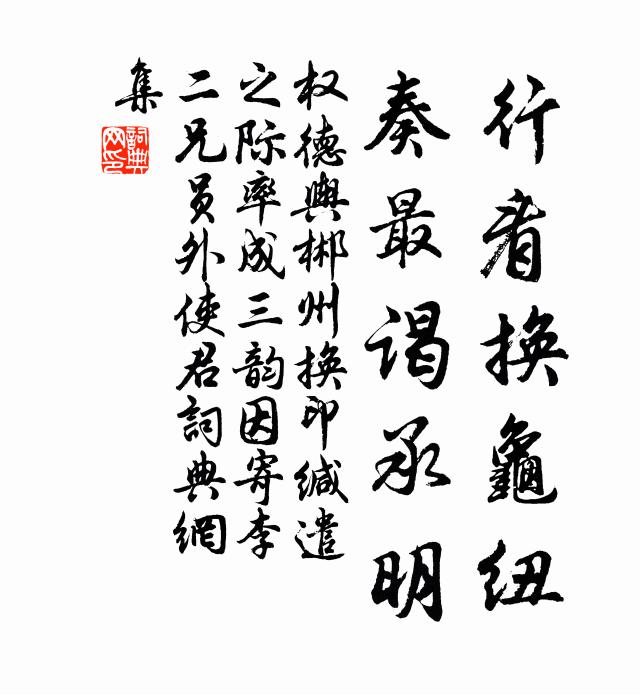 行看换龜纽
奏最谒承明
权德輿郴州换印缄遣
之际率成三韵因寄李
二兄员外使君詞典網
集
詞典网印